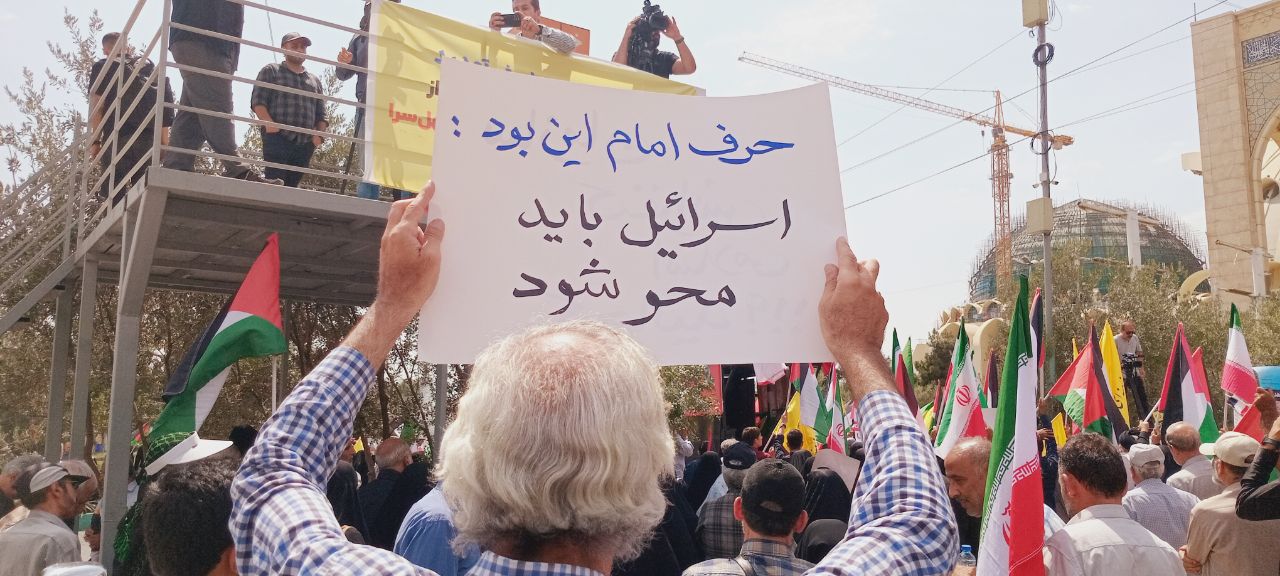 حرف امام این بود :
اسرائیل باید
محو شود